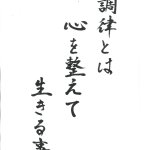 調律とは
心を整えて
生きる事